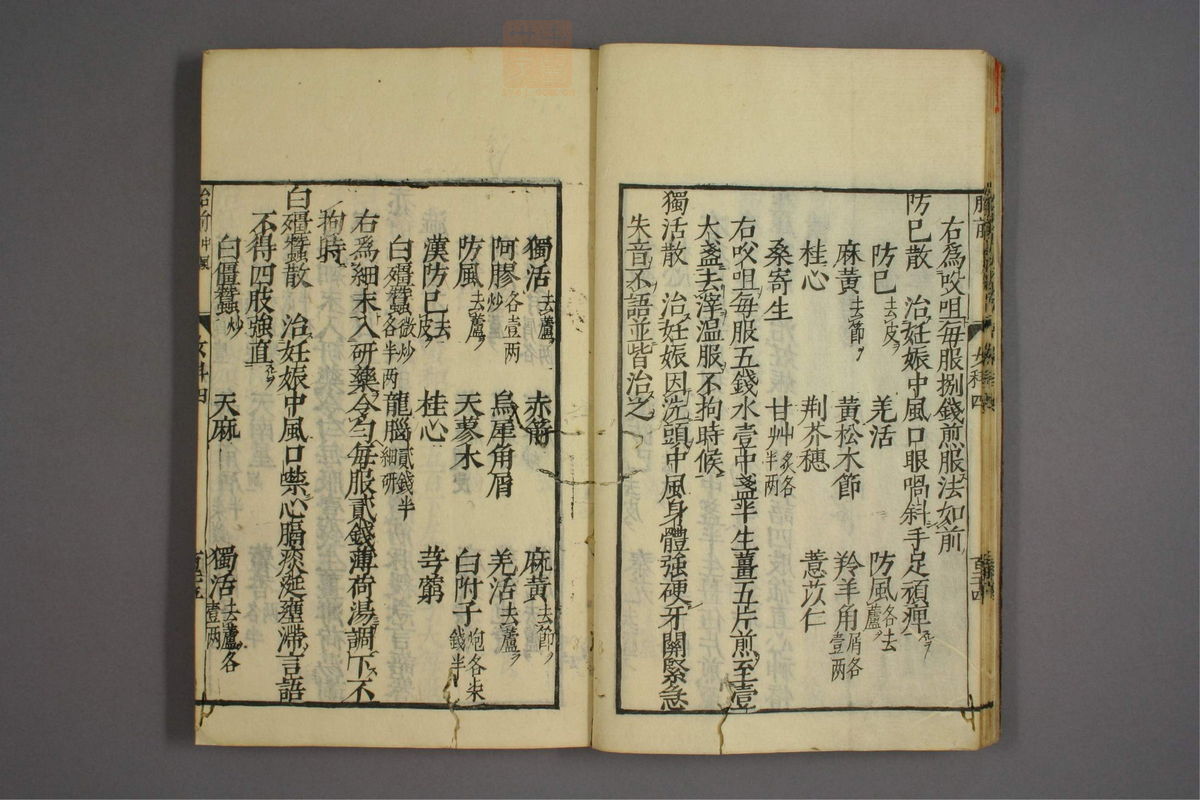 胎前
女科四
百三十四
右爲㕮咀每服捌錢煎服法如前
防巳散 治妊娠中風口眼喎斜手足頑痺
防巳去皮 羌活 防風各去蘆
麻黃去節 黃松木節 羚羊角屑各壹两
桂心 荆芥穗 薏苡仁
桑寄生 甘艸炙各半两
右㕮咀每服五錢水壹中盞半生薑五片煎至壹
大盞去滓温服不拘時候
獨活散 治妊娠因洗頭中風身體強硬牙關緊急
失音不語並皆治之
獨活去蘆 赤箭 麻黃去節
阿膠炒各壹两 烏犀角屑 羌活去蘆
防風去蘆 天蓼木 白附子炮各柒錢半
漢防巳去皮 桂心 芎藭
白殭蠶微炒各半两 龍腦貳錢半細研
右爲細末入研藥令勻每服貳錢薄荷湯調下不
拘時
白殭蠶散 治妊娠中風口噤心膈痰涎壅滯言語
不得四肢強直
白僵蠶炒 天麻 獨活去蘆各壹两
女科四